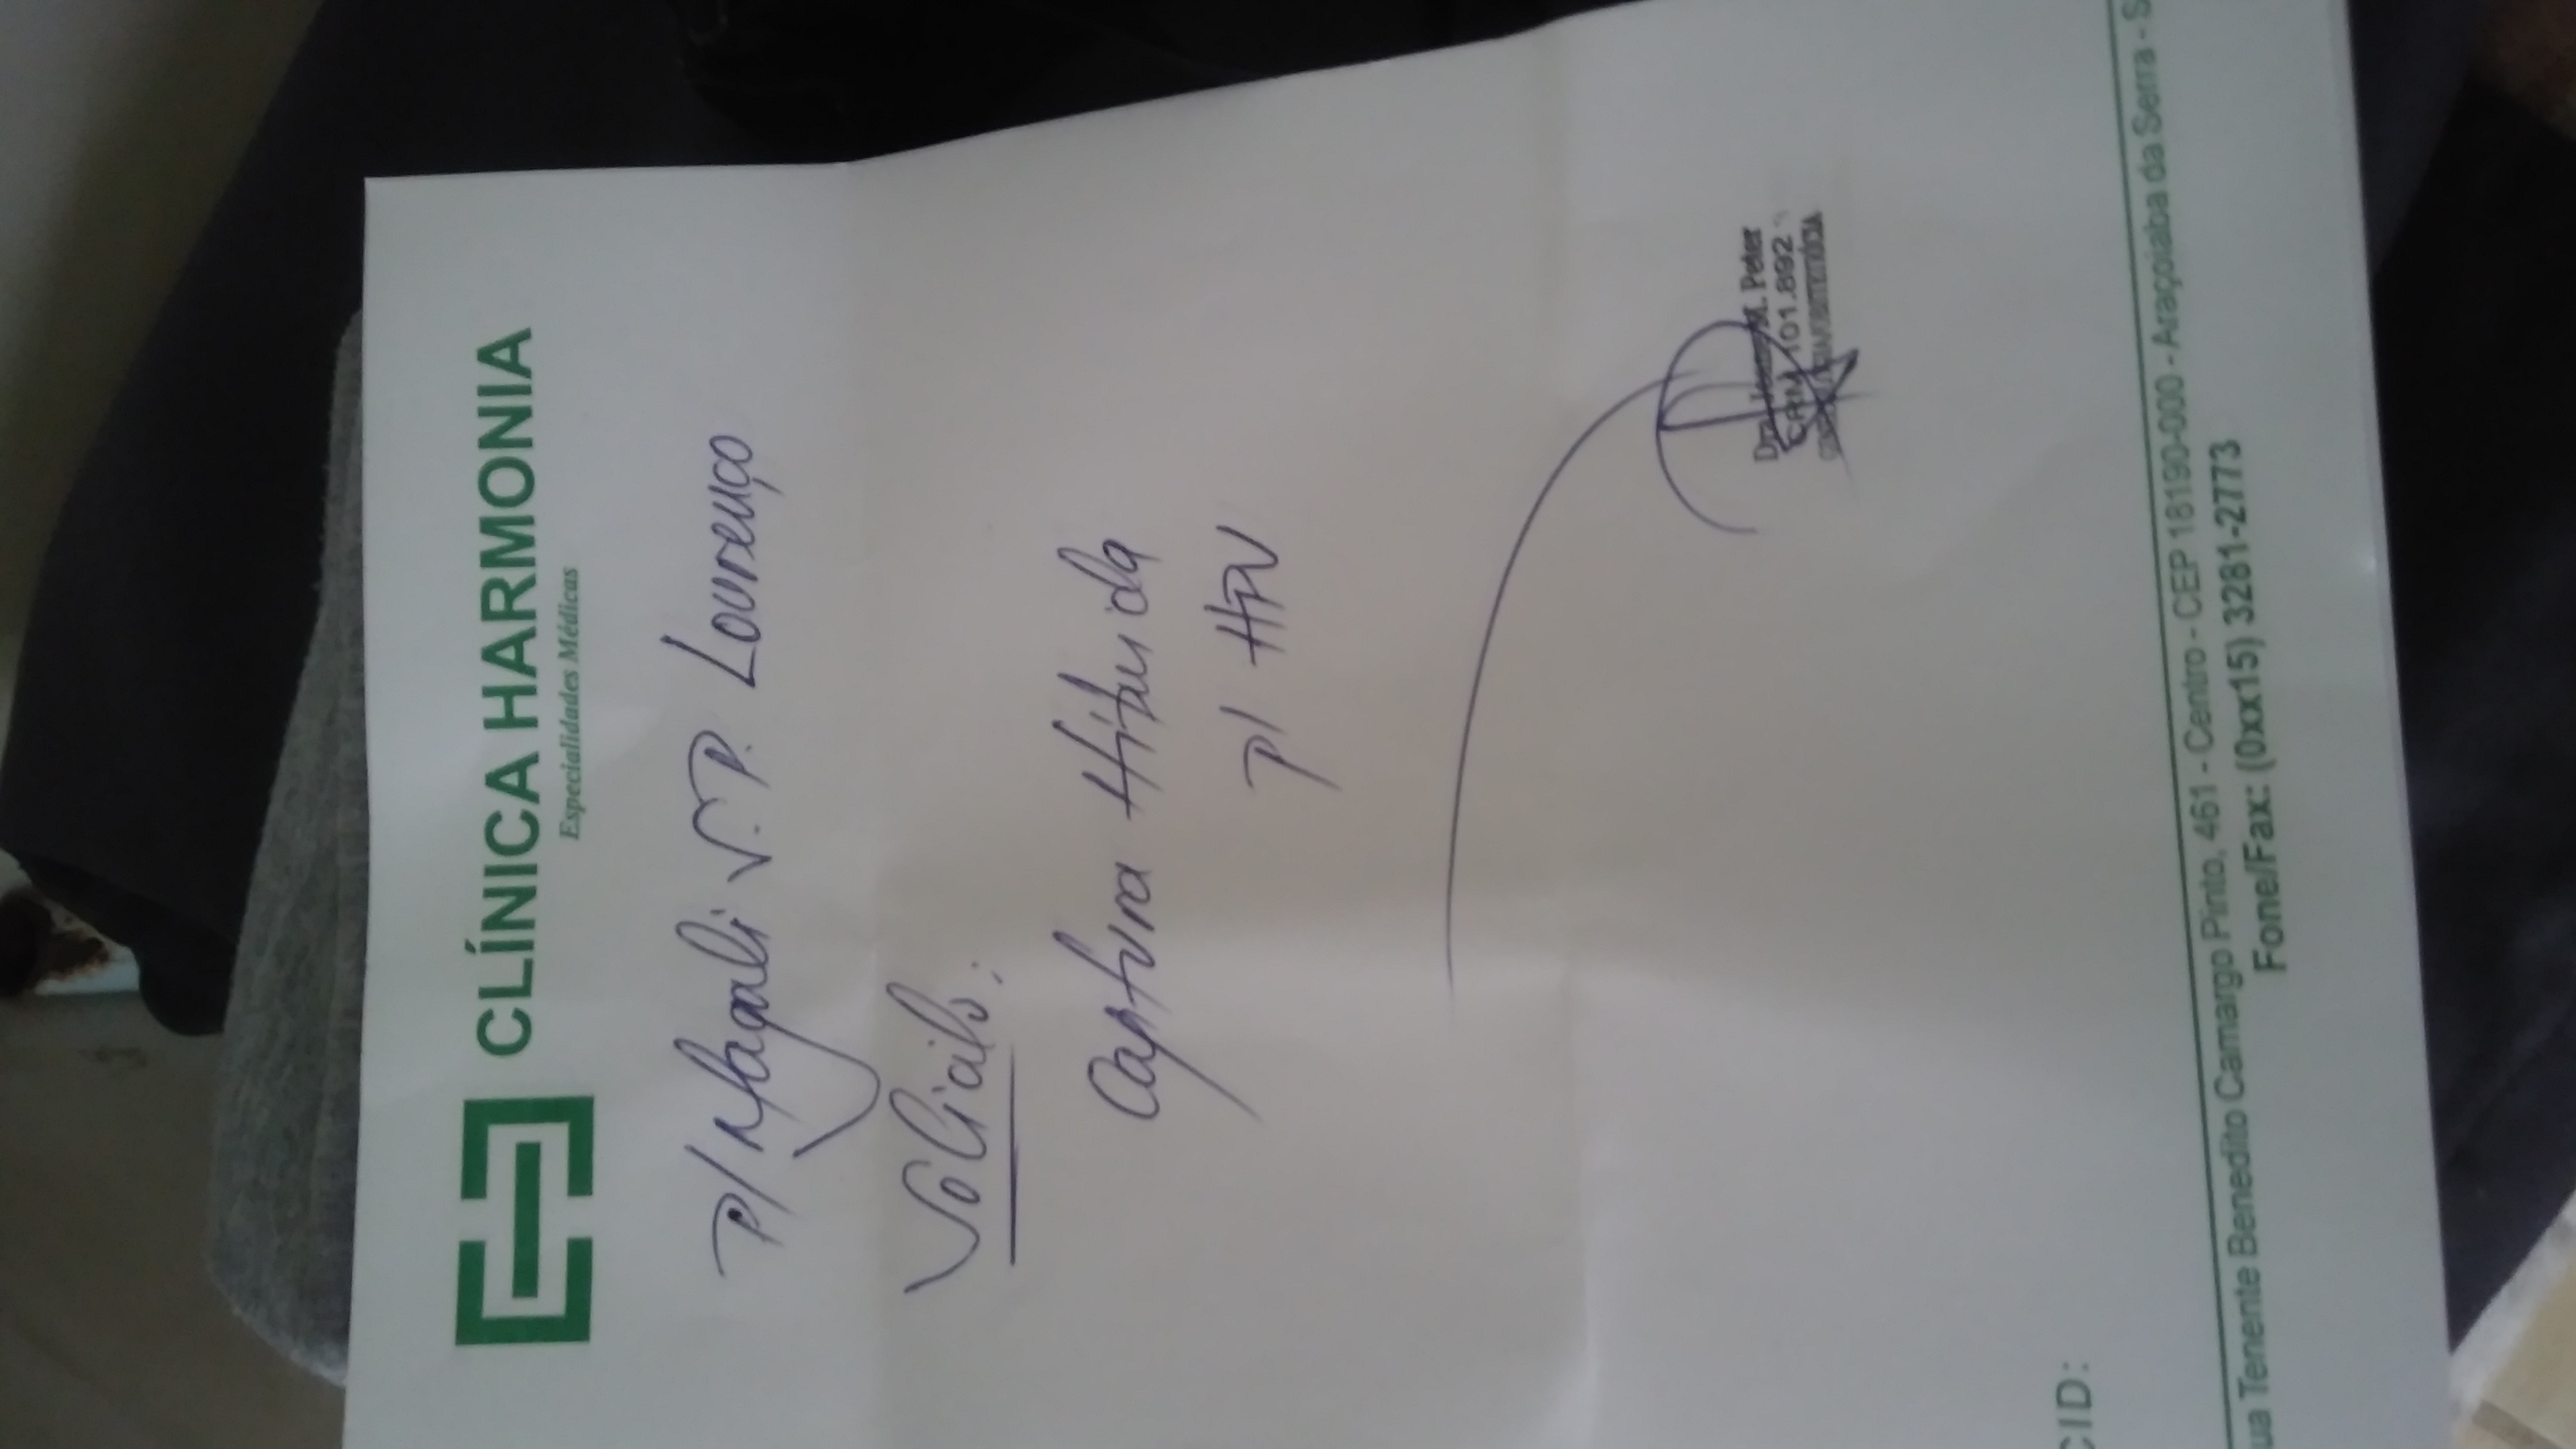 CLÍNICA HARMONIA
Especialidades Médicas
P/ Magali S. P. Lourenço
Solicito:
Captura Híbrida
p/ HPV
Dra. M. Peter
CRM 101.892
CID:
ua Tenente Benedito Camargo Pinto, 461 - Centro - CEP 18190-000 - Araçoiaba da Serra - S
Fone/Fax: (0xx15) 3281-2773